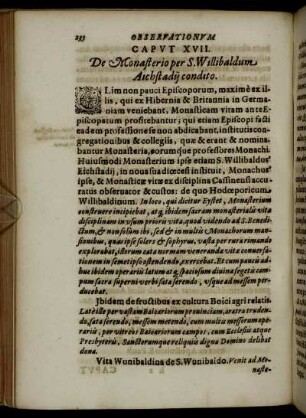 233 OBSERVATIONVM
CAPVT XVII.
De Monasterio per S. Willibaldum
Aichstadij condito.
OLim non pauci Episcoporum, maximè ex il-
lis, qui ex Hibernia & Britannia in Germa-
niam veniebant, Monasticam vitam ante E-
piscopatum profitebantur; qui etiam Episcopi facti
eadem professione se non abdicabant, institutis con-
gregationibus & collegiis, quæ & erant & nomina-
bantur Monasteria, eorumque professores Monachi
Huiusmodi Monasterium ipse etiam S. Willibaldus
Eichstadij, in noua sua diœcesi instituit, Monachus
ipse, & Monasticæ vitæ ex disciplina Cassinensi accu-
ratus obseruator & cultor: de quo Hodœporicum
Willibaldinum. In loco, qui dicitur Eystet, Monasterium
construere incipiebat, atq; ibidem sacram monasterialis vitæ
disciplinam in vsum prioris vitæ, quod videndo ad S. Benedi-
ctum, & non solum ibi, sed & in multis Monachorum man-
sionibus, quas ipse solers & sophyrus, vasta per rura rimando
explorabat, istorum æta normam veneranda vitæ conuersa-
tionem in semetipso ostendendo, exercebat. Et cum paucis ad-
huc ibidem operariis latum atq; spatiosum diuinæ segetis cam-
pum sacra superni verbi sata serendo, vsque ad messem per-
ducebat.
Ibidem de fructibus ex cultura Boici agri relatis.
Latè iste per vastam Baioariorum prouinciam, aratra trudendo,
sata serendo, messem metendo, cum multa messorum ope-
rariis, per vitreos Baioariorum campos, cum Ecclesiis atque
Presbyteris, Sanctorumque reliquiis digna Domino delibat
dona.
Vita Wunibaldina de S. Wunibaldo. Venit ad Mo-
naste-